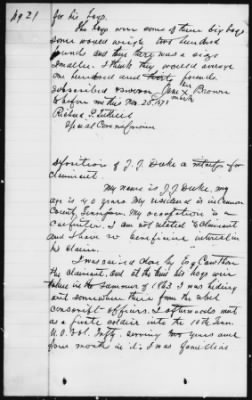 pg. 21
for his hogs.
The hogs were some of them big hogs
some would weigh two hundred
pounds and then there was a size
smaller. I think they would average
one hundred and forty pounds.
Subscribed & sworn Jane X Brown
to before me this Nov. 20. 1871 mark
Special Commissioner
Deposition of J. J. Duke a witness for
claimant.
My name is J J Duke, my
age is 40 years My residence is in Cannon
County, Tennessee. My occupation is a
carpenter. I am not related to claimant
and I have no beneficial interest in
his claim.
I was raised close by
the claimant, and at the time his hogs were
taken in the summer of 1863 I was hiding
out somewhere there from the rebel
conscript officers. I afterwards went
as a private soldier into the 10th Tenn.
U.S. Vol. Infty. serving two years and
one month in it. I was